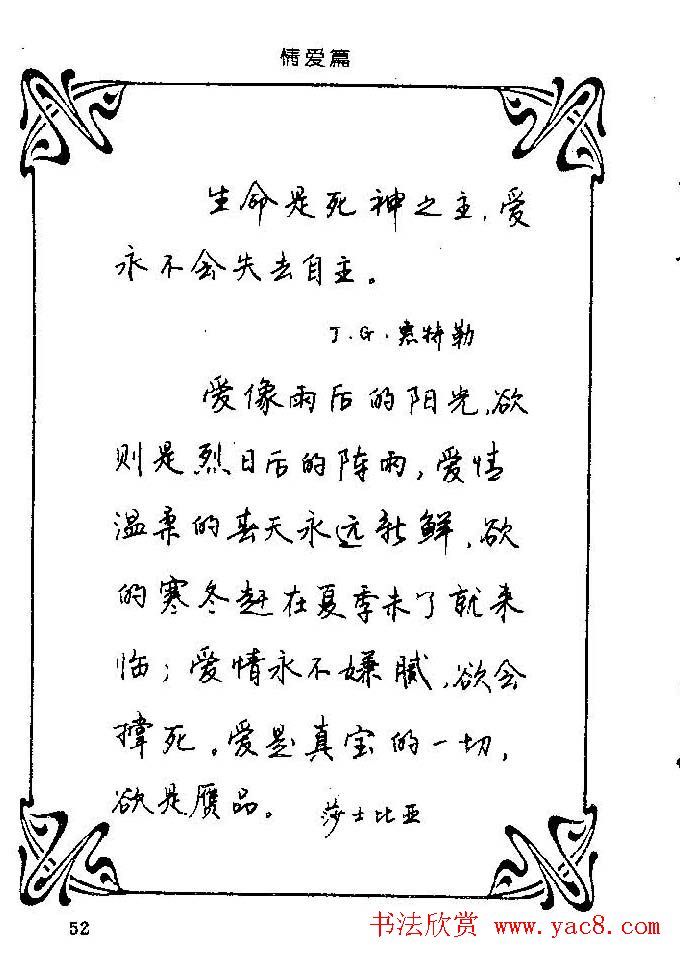 情爱篇
生命是死神之主，爱
永不会失去自主。
J.G.惠特勒
爱像雨后的阳光，欲
则是烈日后的阵雨，爱情
温柔的春天永远新鲜，欲
的寒冬赶在夏季未了就来
临；爱情永不嫌腻，欲会
撑死。爱是真宝的一切，
欲是赝品。 莎士比亚
52
书法欣赏 www.yac8.com